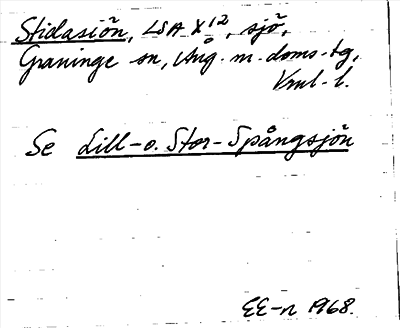 Stidasiön, LSA X 12, sjö,
Graninge sn, Ång. m. doms-tg,
Vnrl-l.
Se Lill- o. Stor-Spångsjön
EE-n 1968.